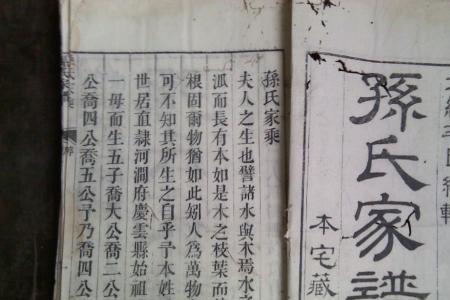 孫氏家譜
本宅藏
孫氏家乘
夫人之生也譬諸水與木焉水
泒而長有本如是木之枝葉而
根固爾物猶如此矧人為萬物
可不知其所生之自乎予本姓
世居直隸河澗府慶雲縣始祖
一母而生五子喬大公喬二公
公喬四公喬五公予乃喬四公